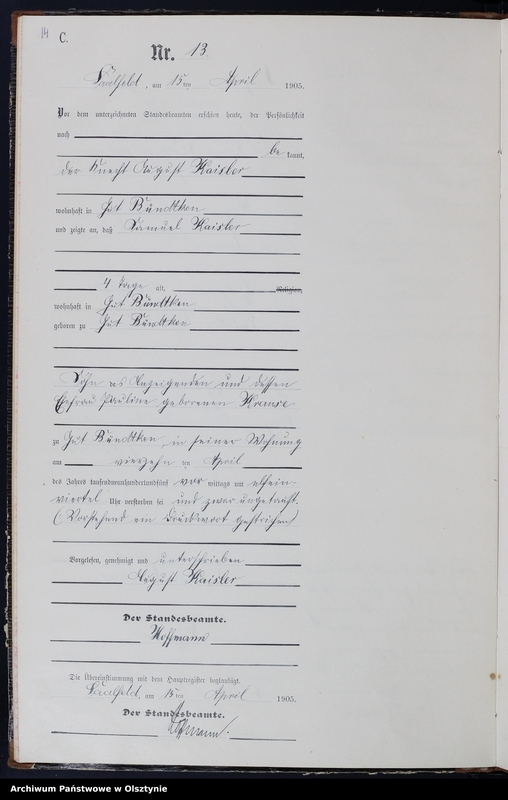 14
C.
Nr. 13.
Saalfeld, am 15ten April 1905.
Vor dem unterzeichneten Standesbeamten erschien heute, der Persönlichkeit
nach
be kannt,
der Knecht August Kaisler
wohnhaft in Gut Bündtken
und zeigte an, daß Samuel Kaisler
4 Tage alt, Religion,
wohnhaft in Gut Bündtken
geboren zu Gut Bündtken
Sohn des Anzeigenden und dessen
Ehefrau Pauline geborenen Krause
zu Gut Bündtken, in seiner Wohnung
am vierzehn ten April
des Jahres tausendneunhundertundfünf vor mittags um elfein-
viertel Uhr verstorben sei und zwar ungetauft.
(Vorstehend ein Druckwort gestrichen)
Vorgelesen, genehmigt und unterschrieben
August Kaisler
Der Standesbeamte.
Hoffmann
Die Übereinstimmung mit dem Hauptregister beglaubigt.
Saalfeld, am 15ten April 1905.
Der Standesbeamte.
Hoffmann.
Archiwum Państwowe w Olsztynie